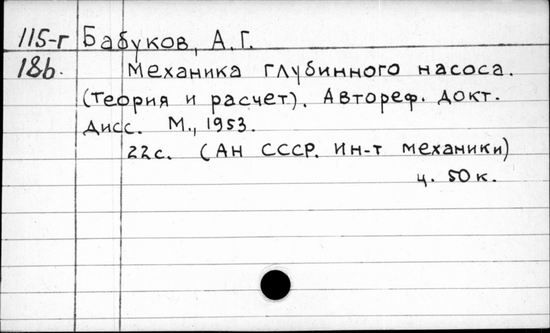 115-г Бабуков, А.Г.
18б. Механика глубинного насоса.
(Теория и расчет). Автореф. докт.
дисс. М., 1953.
22с. (АН СССР. Ин-т механики)
ц. 50 к.